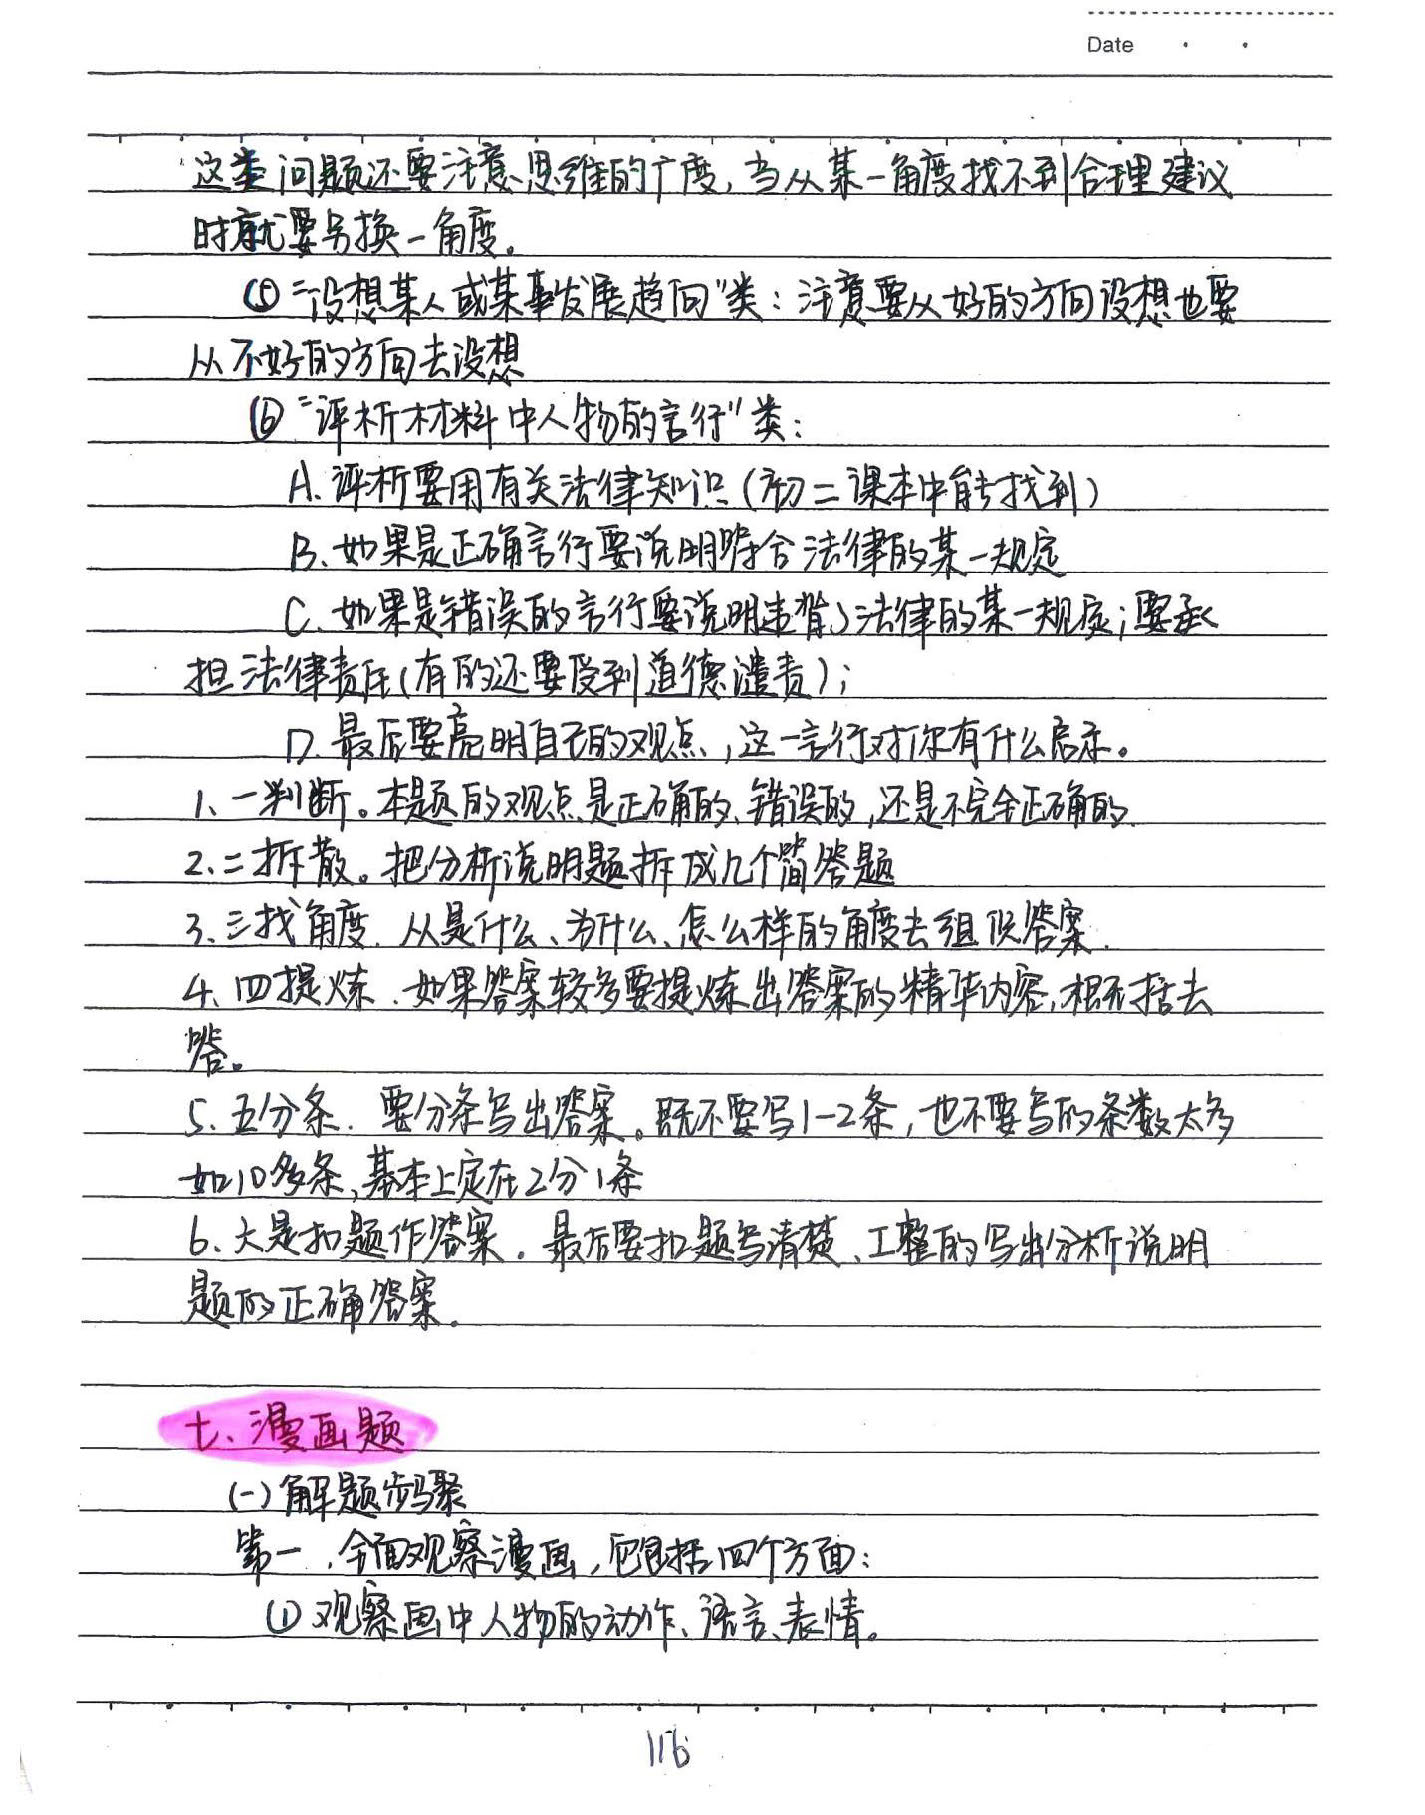 Date
这类问题还要注意思维的广度,当从某一角度找不到合理建议
时就要另换一角度。
⑤“设想某人或某事发展趋向”类:注意要从好的方向设想也要
从不好的方向去设想
⑥“评析材料中人物的言行”类:
A、评析要用有关法律知识(初二课本中能找到)
B、如果是正确言行要说明符合法律的某一规定
C、如果是错误的言行要说明违背了法律的某一规定;要承
担法律责任(有的还要受到道德谴责);
D、最后要亮明自己的观点,这一言行对你有什么启示。
1、一判断。本题的观点是正确的、错误的,还是不完全正确的.
2、二拆散。把分析说明题拆成几个简答题
3、三找角度.从是什么、为什么、怎么样的角度去组织答案.
4、四提炼.如果答案较多要提炼出答案的精华内容,概括去
答。
5、五分条.要分条写出答案。既不要写1-2条,也不要写的条数太多
如10多条,基本上定在2分1条
6、六是扣题作答案.最后要扣题写清楚、工整的写出分析说明
题的正确答案.
七、漫画题
(一)解题步骤
第一.全面观察漫画,它包括四个方面:
①观察画中人物的动作、语言、表情。
116